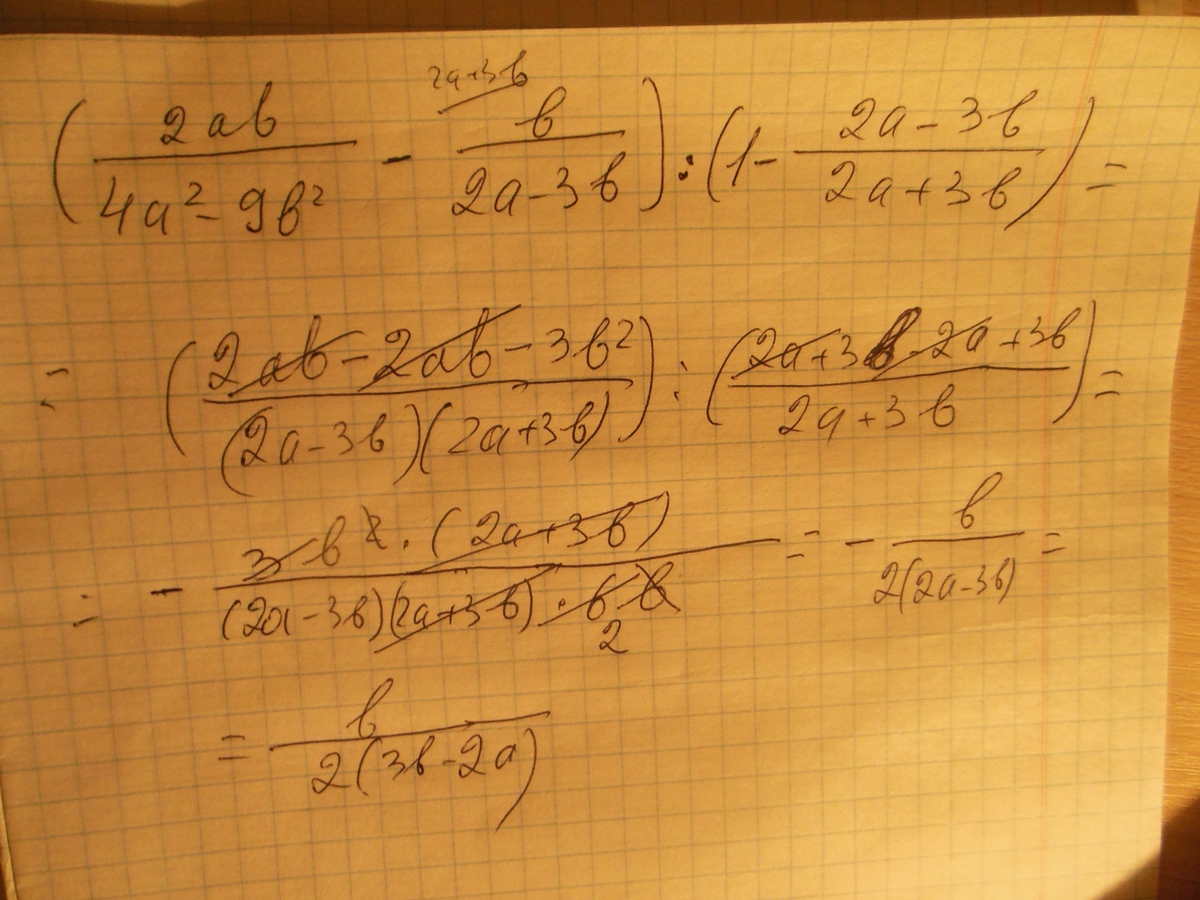 2a+3b
(2ab/(4a²-9b²) - b/(2a-3b)) : (1 - (2a-3b)/(2a+3b)) =
= ((2ab-2ab-3b²)/((2a-3b)(2a+3b))) : ((2a+3b-2a+3b)/(2a+3b)) =
= - (3b²·(2a+3b))/((2a-3b)(2a+3b)·6b) = - b/(2(2a-3b)) =
2
= b/(2(3b-2a))